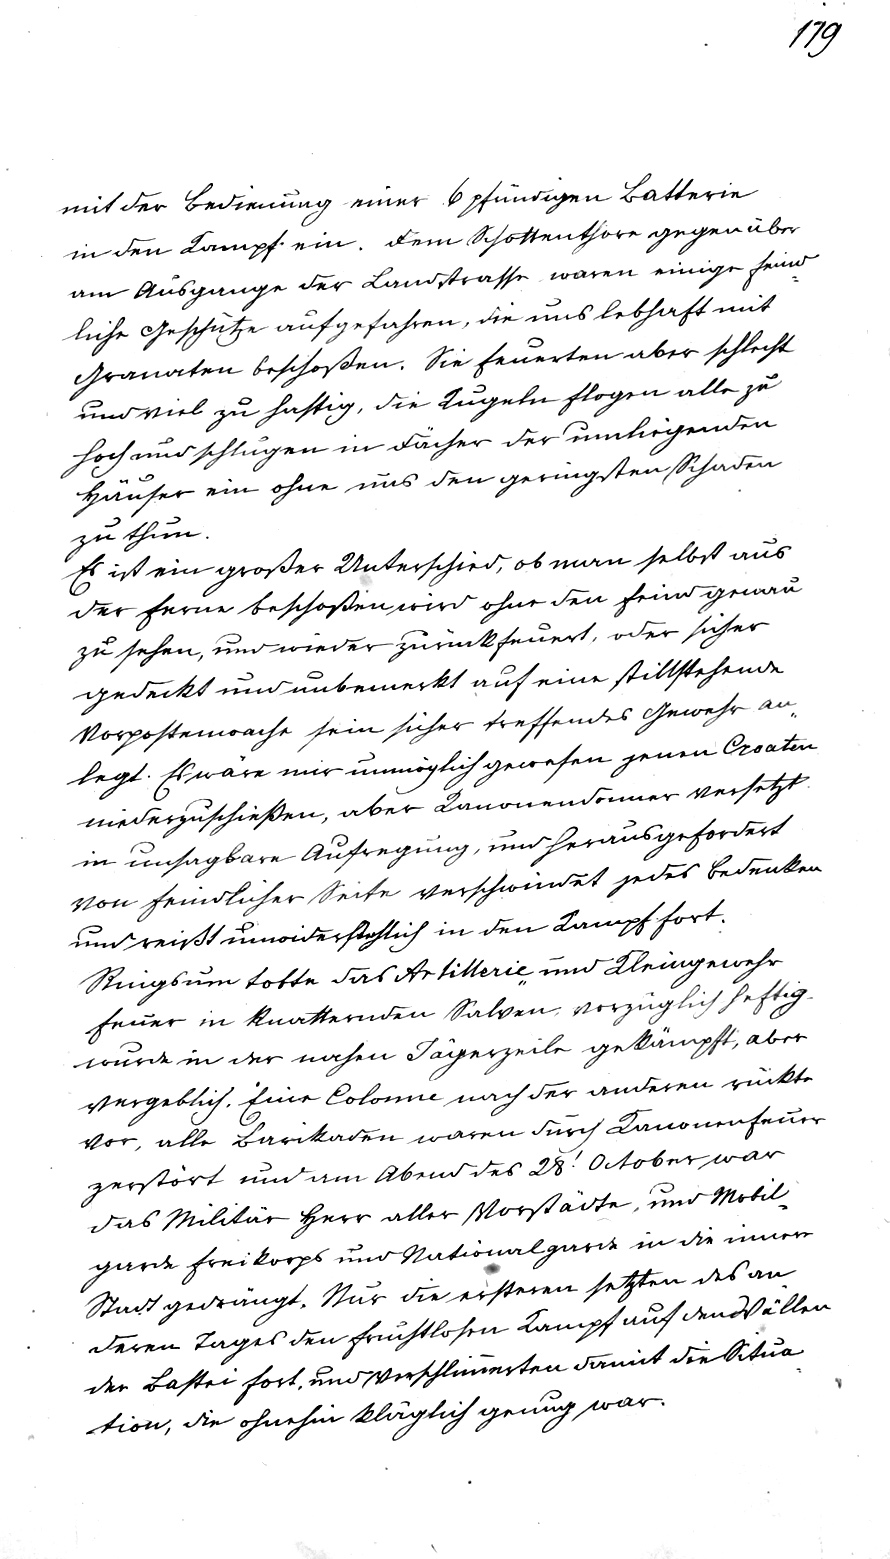 179
mit der Bedienung einer 6 pfündigen Batterie
in den Kampf ein. Dem Schottenthore gegenüber
am Ausgange der Landstrasse waren einige feind„
liche Geschütze aufgefahren, die uns lebhaft mit
Granaten beschoßen. Sie feuerten aber schlecht
und viel zu hastig, die Kugeln flogen alle zu
hoch und schlugen in Dächer der umliegenden
Häuser ein ohne uns den geringsten Schaden
zu thun.
Es ist ein großer Unterschied, ob man selbst aus
der Ferne beschoßen wird ohne den Feind genau
zu sehen, und wieder zurückfeuert, oder sicher
gedeckt und unbemerkt auf eine stillstehende
Vorpostenwache sein sicher treffendes Gewehr an„
legt. Es wäre mir unmöglich gewesen jenen Croaten
niederzuschießen, aber Kanonendonner versetzt
in unsagbare Aufregung, und herausgefordert
von feindlicher Seite verschwindet jedes Bedenken
und reißt unwiderstehlich in den Kampf fort.
Ringsum tobte das Artillerie„ und Kleingewehr
feuer in knatternden Salven, vorzüglich heftig
wurde in der nahen Jägerzeile gekämpft, aber
vergeblich. Eine Colonne nach der anderen rückte
vor, alle Barikaden waren durch Kanonenfeuer
zerstört und am Abend des 28! October war
das Militär Herr aller Vorstädte, und Mobil„
garde Freikorps und Nationalgarde in die innere
Stadt gedrängt. Nur die ersteren setzten des an
deren Tages den fruchtlosen Kampf auf den Wällen
der Bastei fort, und verschlimerten damit die Situa„
tion, die ohnehin kläglich genug war.